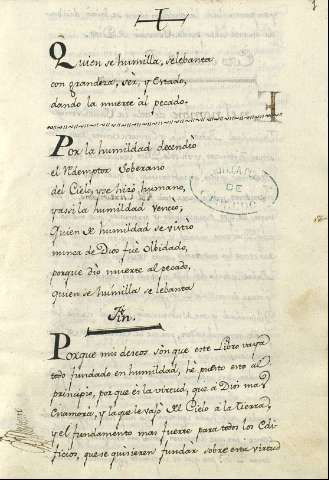 Quien se humilla, selebanta
con grandeza, ser, y Estado,
dando la muerte al pecado.
Por la humildad decendio
el Rdemptor Soberano
del Cielo, y se hizo humano,
y assi la humildad Vencio,
Quien de humildad se vistio
nunca de Dios fue Olbidado,
porque dio muerte al pecado,
quien se humilla se lebanta
Fin.
Porque mis deseos son que este Libro vaya
todo fundado en humildad, he puesto esto al
principio, por que es la virtud, que a Dios mas
Enamora, y la que le vajo del Cielo a la Tierra,
y el fundamento mas fuerte para todos los Edi-
ficios, que se quisieren fundar sobre esta virtud
DE